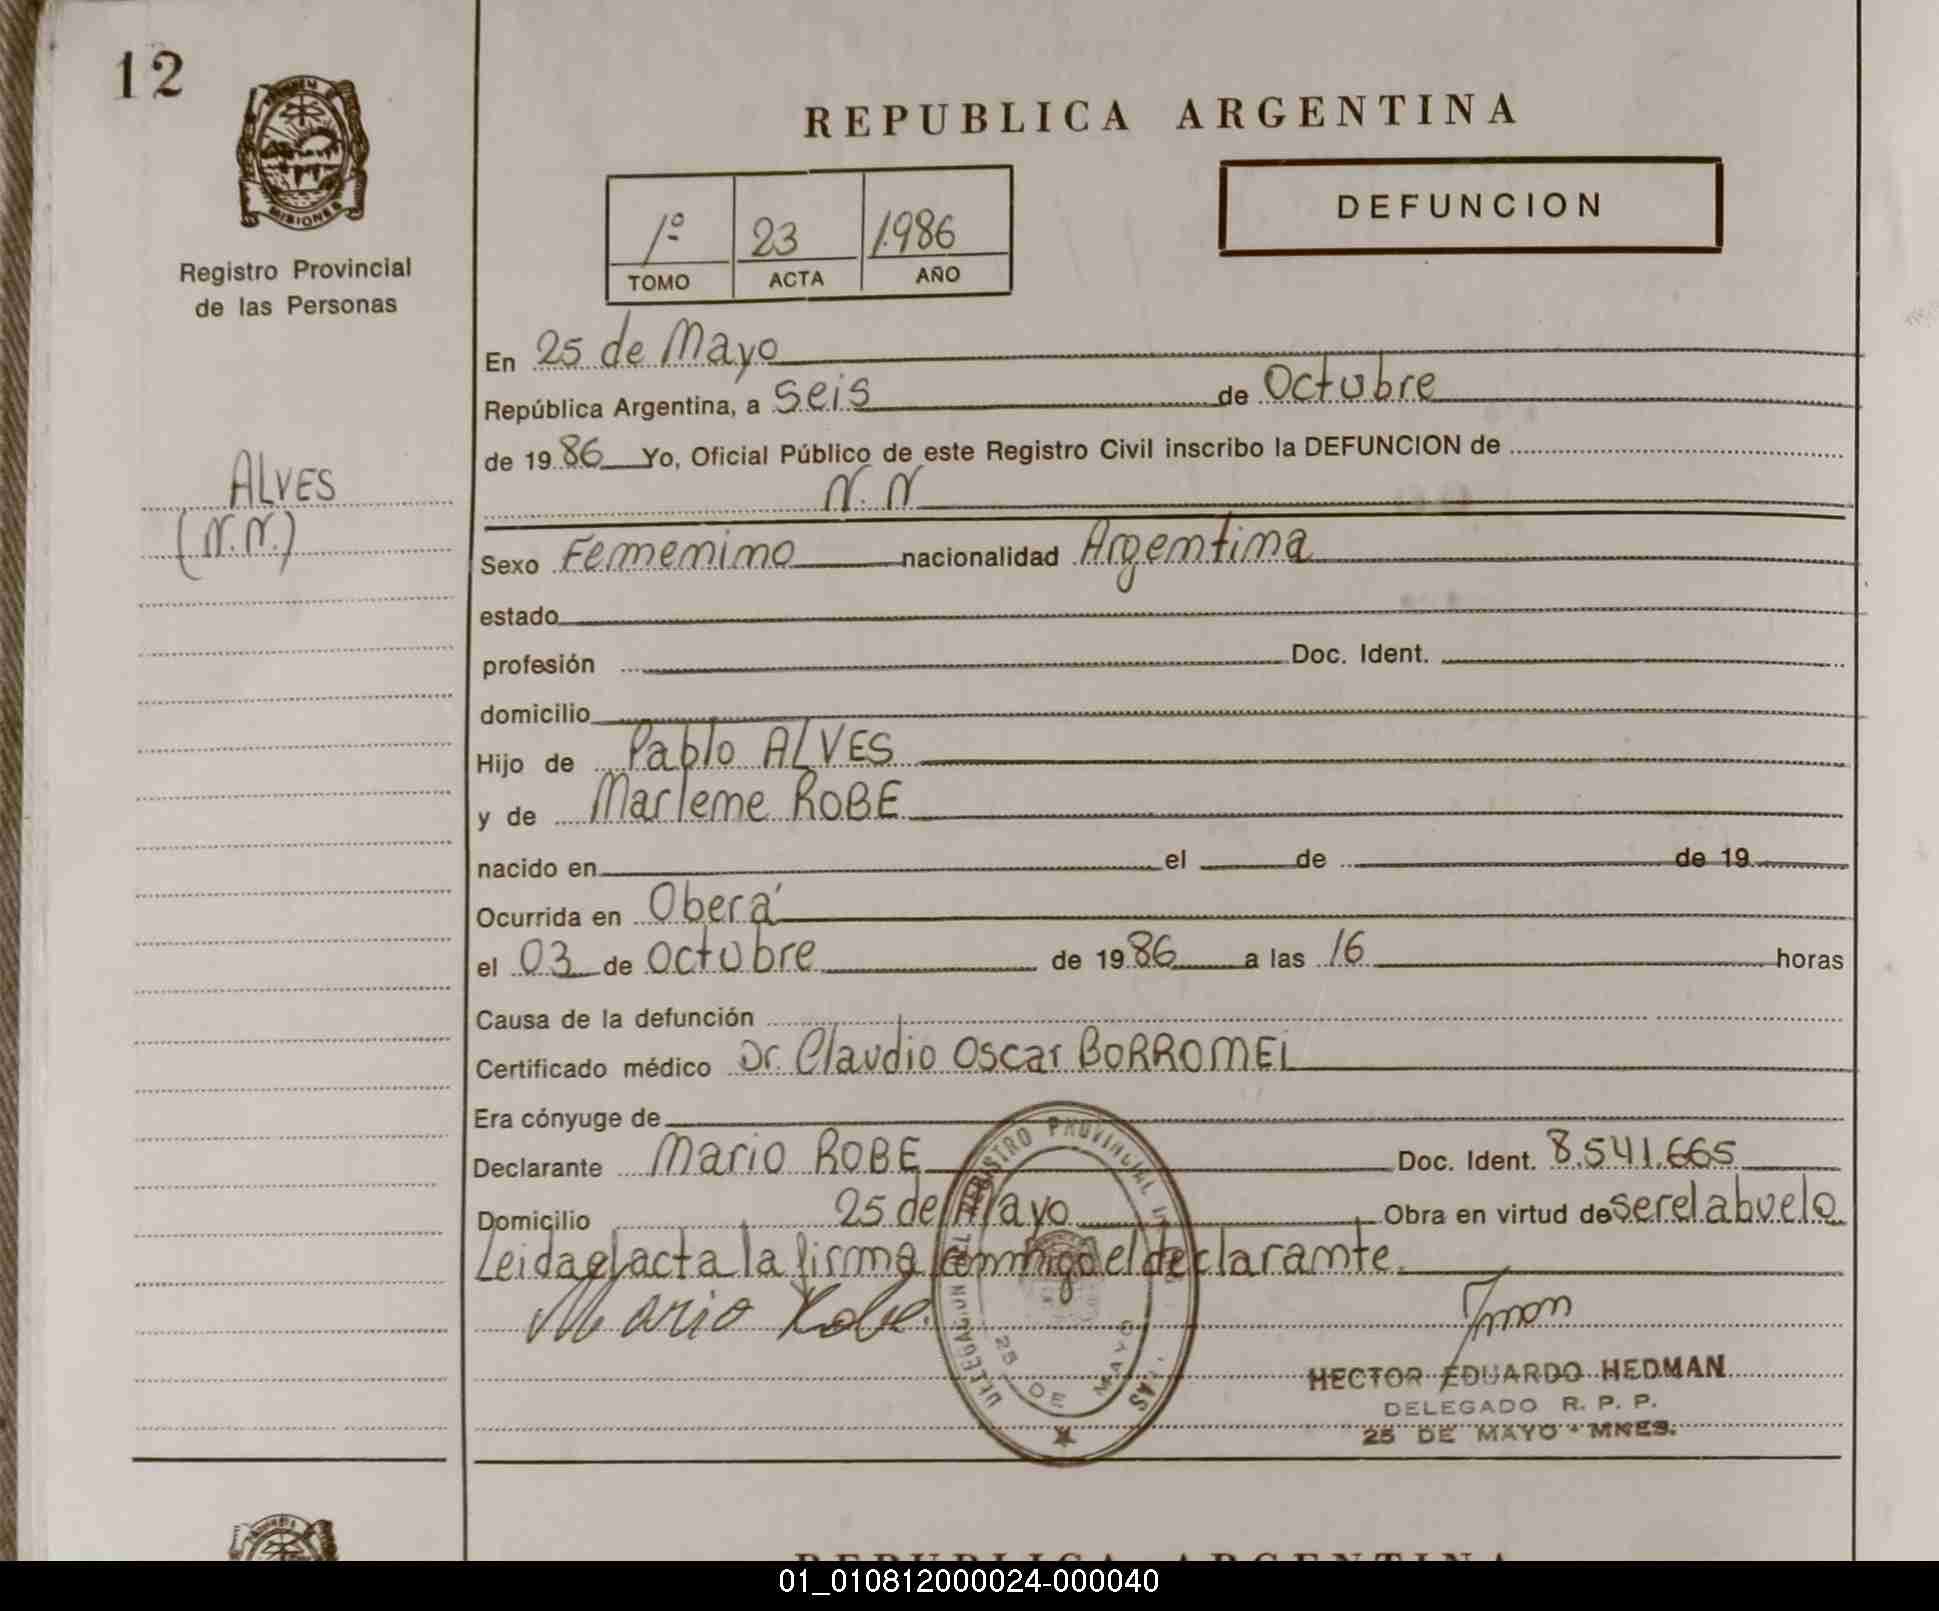 12
MISIONES
Registro Provincial
de las Personas
ALVES
(N.N.)
REPUBLICA ARGENTINA
1º 23 1986
TOMO ACTA AÑO
DEFUNCION
En 25 de Mayo
República Argentina, a seis de Octubre
de 1986 Yo, Oficial Público de este Registro Civil inscribo la DEFUNCION de
N. N
Sexo Femenino nacionalidad Argentina
estado
profesión Doc. Ident.
domicilio
Hijo de Pablo ALVES
y de Marlene ROBE
nacido en el de de 19
Ocurrida en Oberá
el 03 de octubre de 1986 a las 16 horas
Causa de la defunción
Certificado médico Dr. Claudio Oscar BORROMEI
Era cónyuge de
Declarante Mario ROBE Doc. Ident. 8.541.665
Domicilio 25 de Mayo Obra en virtud de ser el abuelo
Leida el acta la firma conmigo el declarante.
Mario Robe.
REGISTRO PROVINCIAL
DELEGACION
25 DE MAYO
HECTOR EDUARDO HEDMAN
DELEGADO R. P. P.
25 DE MAYO - MNES.
REPUBLICA ARGENTINA
01_010812000024-000040